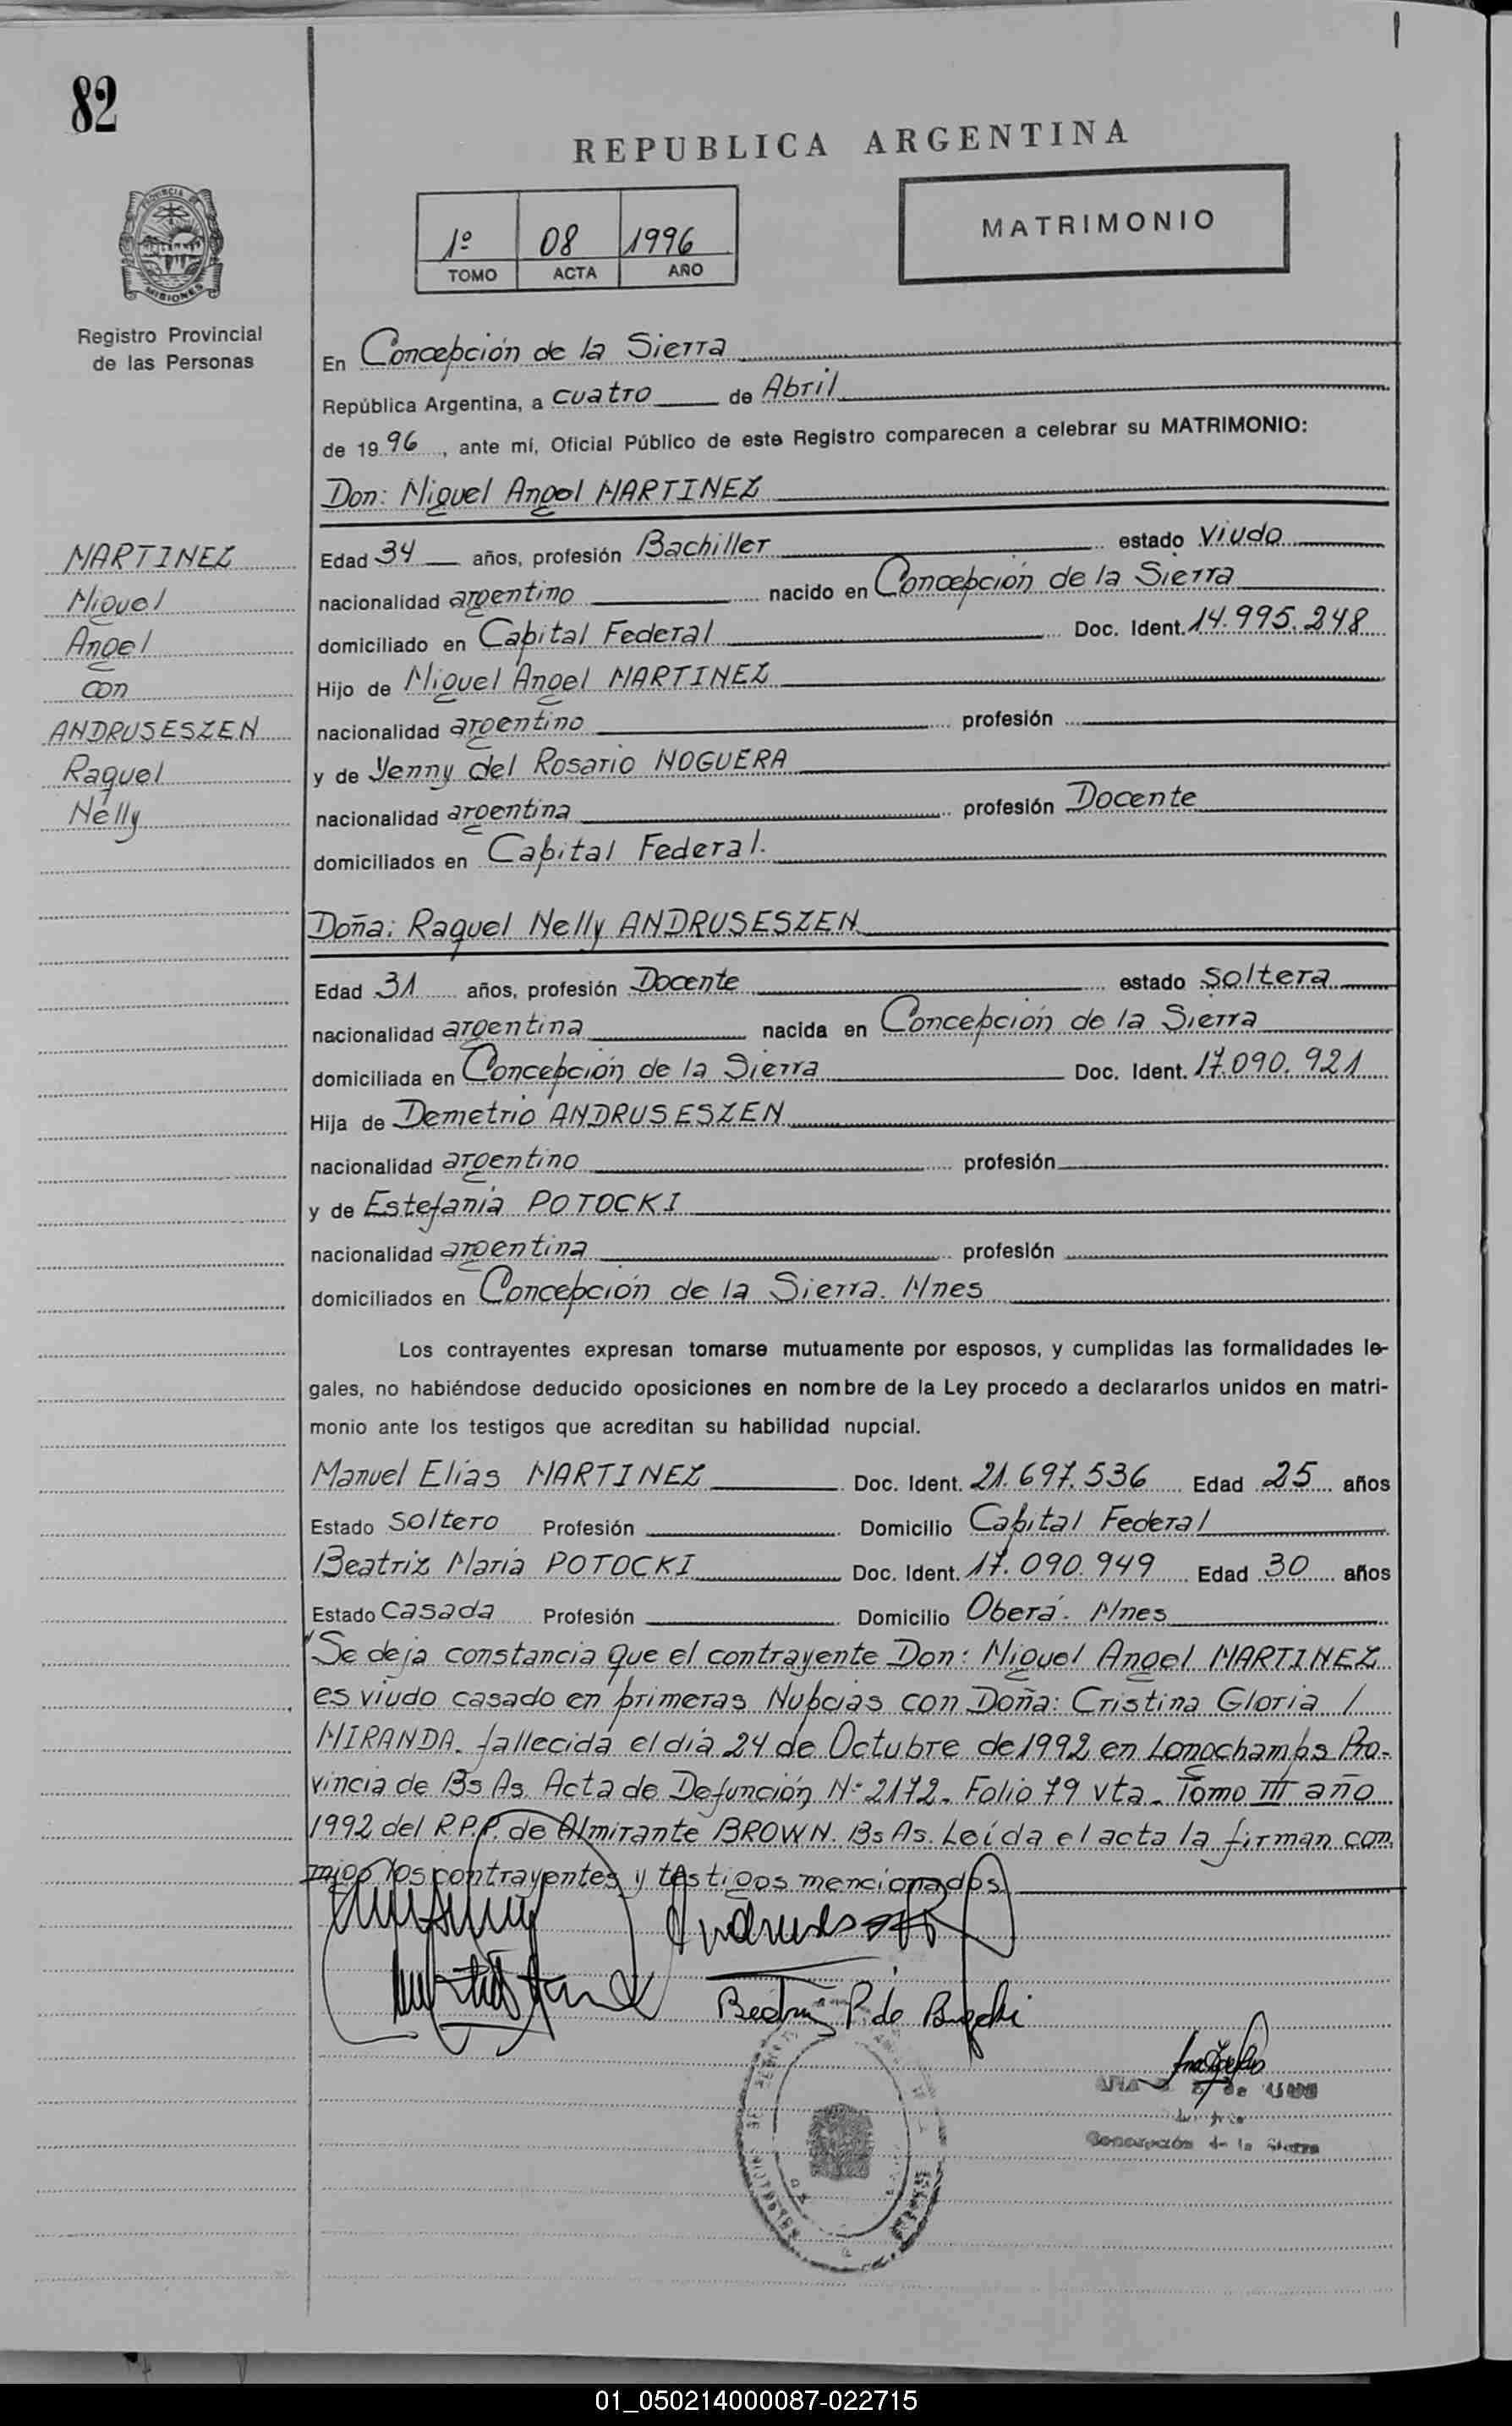 82
REPUBLICA ARGENTINA
1º 08 1996
TOMO ACTA AÑO
MATRIMONIO
PROVINCIA DE
MISIONES
Registro Provincial
de las Personas
En Concepción de la Sierra
República Argentina, a cuatro de Abril
de 1996, ante mí, Oficial Público de este Registro comparecen a celebrar su MATRIMONIO:
Don: Miguel Angel MARTINEZ
MARTINEZ
Miguel
Angel
con
ANDRUSESZEN
Raquel
Nelly
Edad 34 años, profesión Bachiller estado Viudo
nacionalidad argentino nacido en Concepción de la Sierra
domiciliado en Capital Federal Doc. Ident. 14.995.248
Hijo de Miguel Angel MARTINEZ
nacionalidad argentino profesión
y de Yenny del Rosario NOGUERA
nacionalidad argentina profesión Docente
domiciliados en Capital Federal.
Doña: Raquel Nelly ANDRUSESZEN
Edad 31 años, profesión Docente estado Soltera
nacionalidad argentina nacida en Concepción de la Sierra
domiciliada en Concepción de la Sierra Doc. Ident. 17.090.921
Hija de Demetrio ANDRUSESZEN
nacionalidad argentino profesión
y de Estefania POTOCKI
nacionalidad argentina profesión
domiciliados en Concepción de la Sierra. Mnes
Los contrayentes expresan tomarse mutuamente por esposos, y cumplidas las formalidades le-
gales, no habiéndose deducido oposiciones en nombre de la Ley procedo a declararlos unidos en matri-
monio ante los testigos que acreditan su habilidad nupcial.
Manuel Elías MARTINEZ Doc. Ident. 21.697.536 Edad 25 años
Estado Soltero Profesión Domicilio Capital Federal
Beatriz María POTOCKI Doc. Ident. 17.090.949 Edad 30 años
Estado Casada Profesión Domicilio Oberá. Mnes
"Se deja constancia que el contrayente Don: Miguel Angel MARTINEZ
es viudo casado en primeras Nupcias con Doña: Cristina Gloria /
MIRANDA. fallecida el día 24 de Octubre de 1992 en Longchamps Pro-
vincia de Bs As. Acta de Defunción Nº 2172. Folio 79 vta. Tomo III año
1992 del R.P.P. de Almirante BROWN. Bs As. Leída el acta la firman con
migo los contrayentes y testigos mencionados.
Beatriz P. de
de
Concepción de la Sierra
01_050214000087-022715